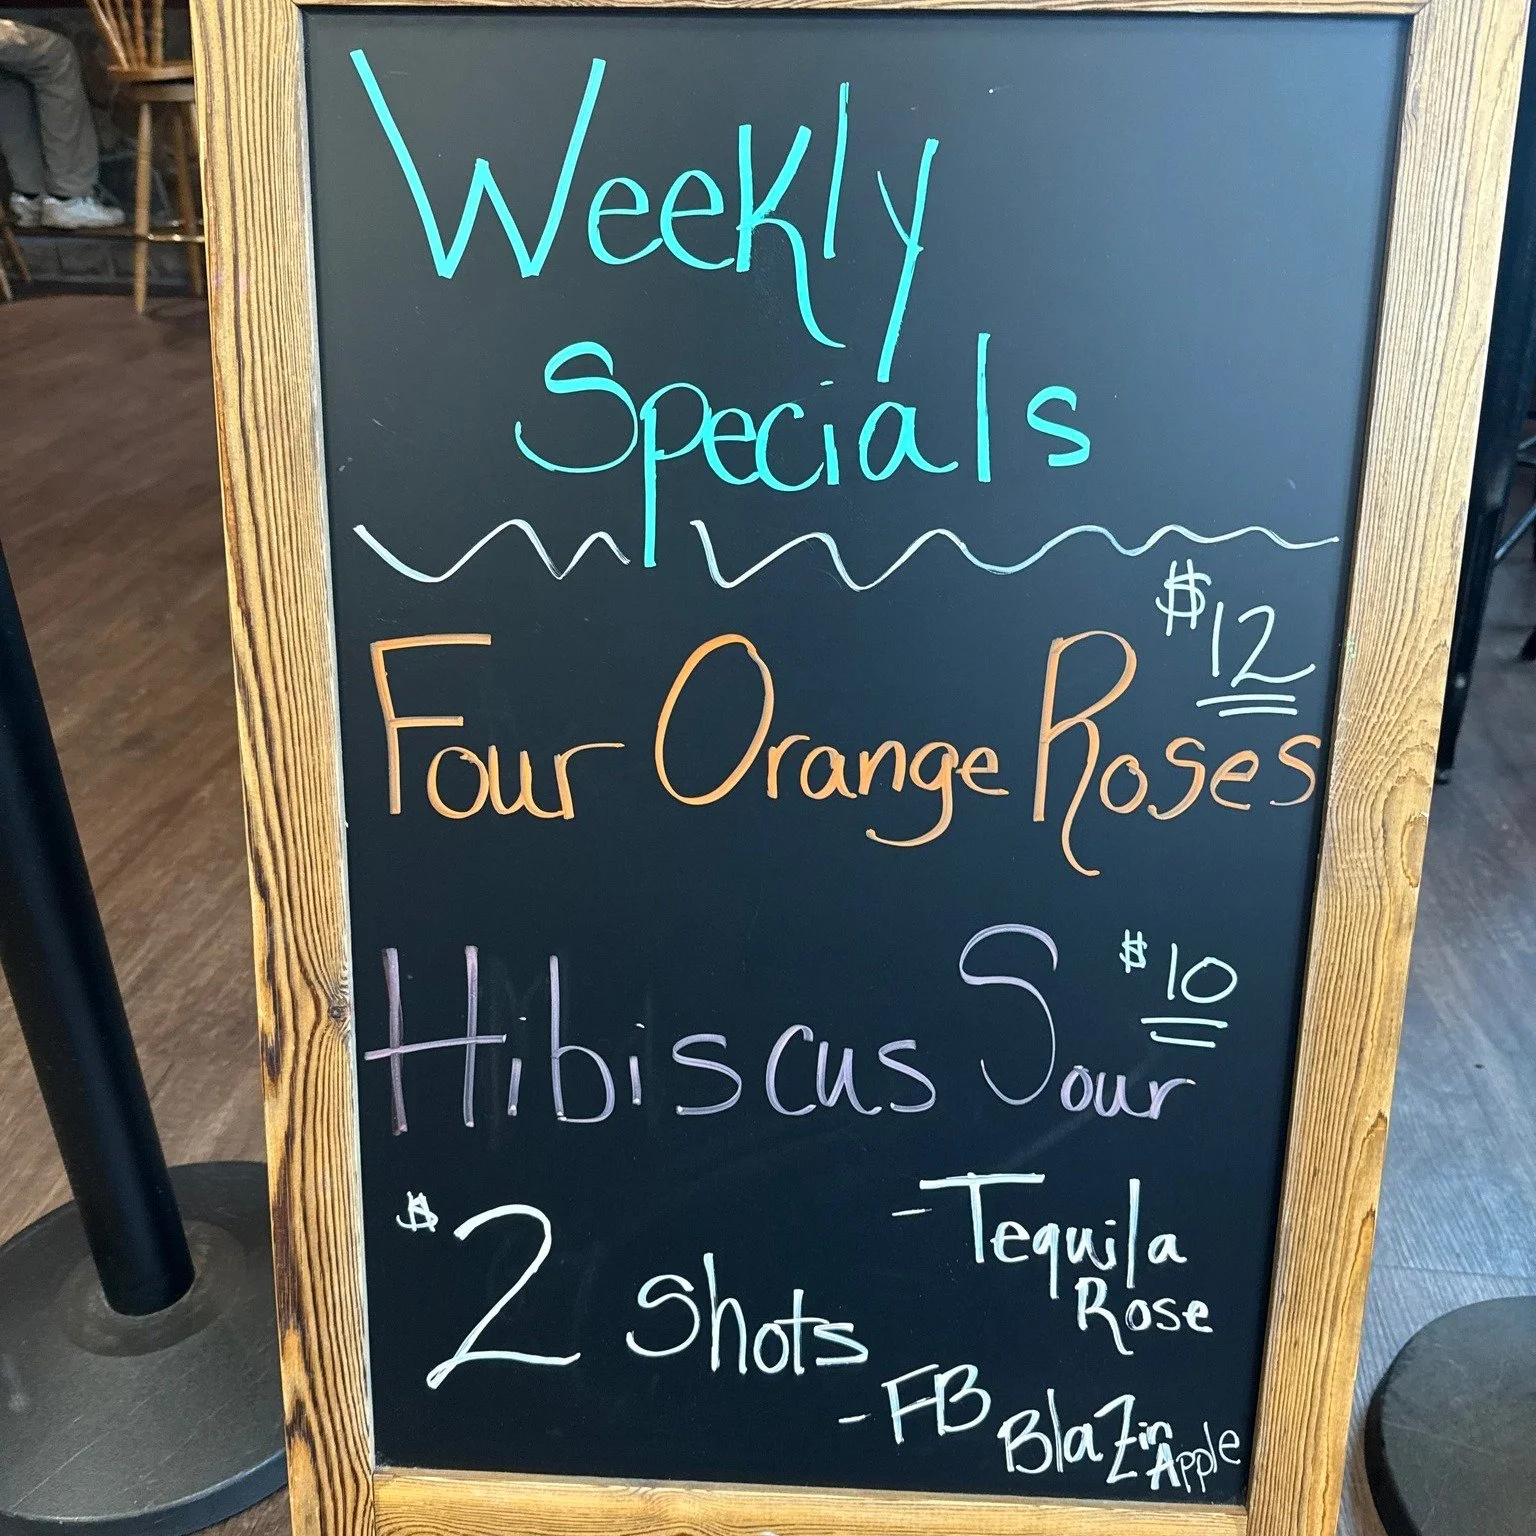 Weekly
Specials
$12
Four Orange Roses
$10
Hibiscus Sour
$2 Shots
- Tequila
Rose
- FB Blazin
Apple